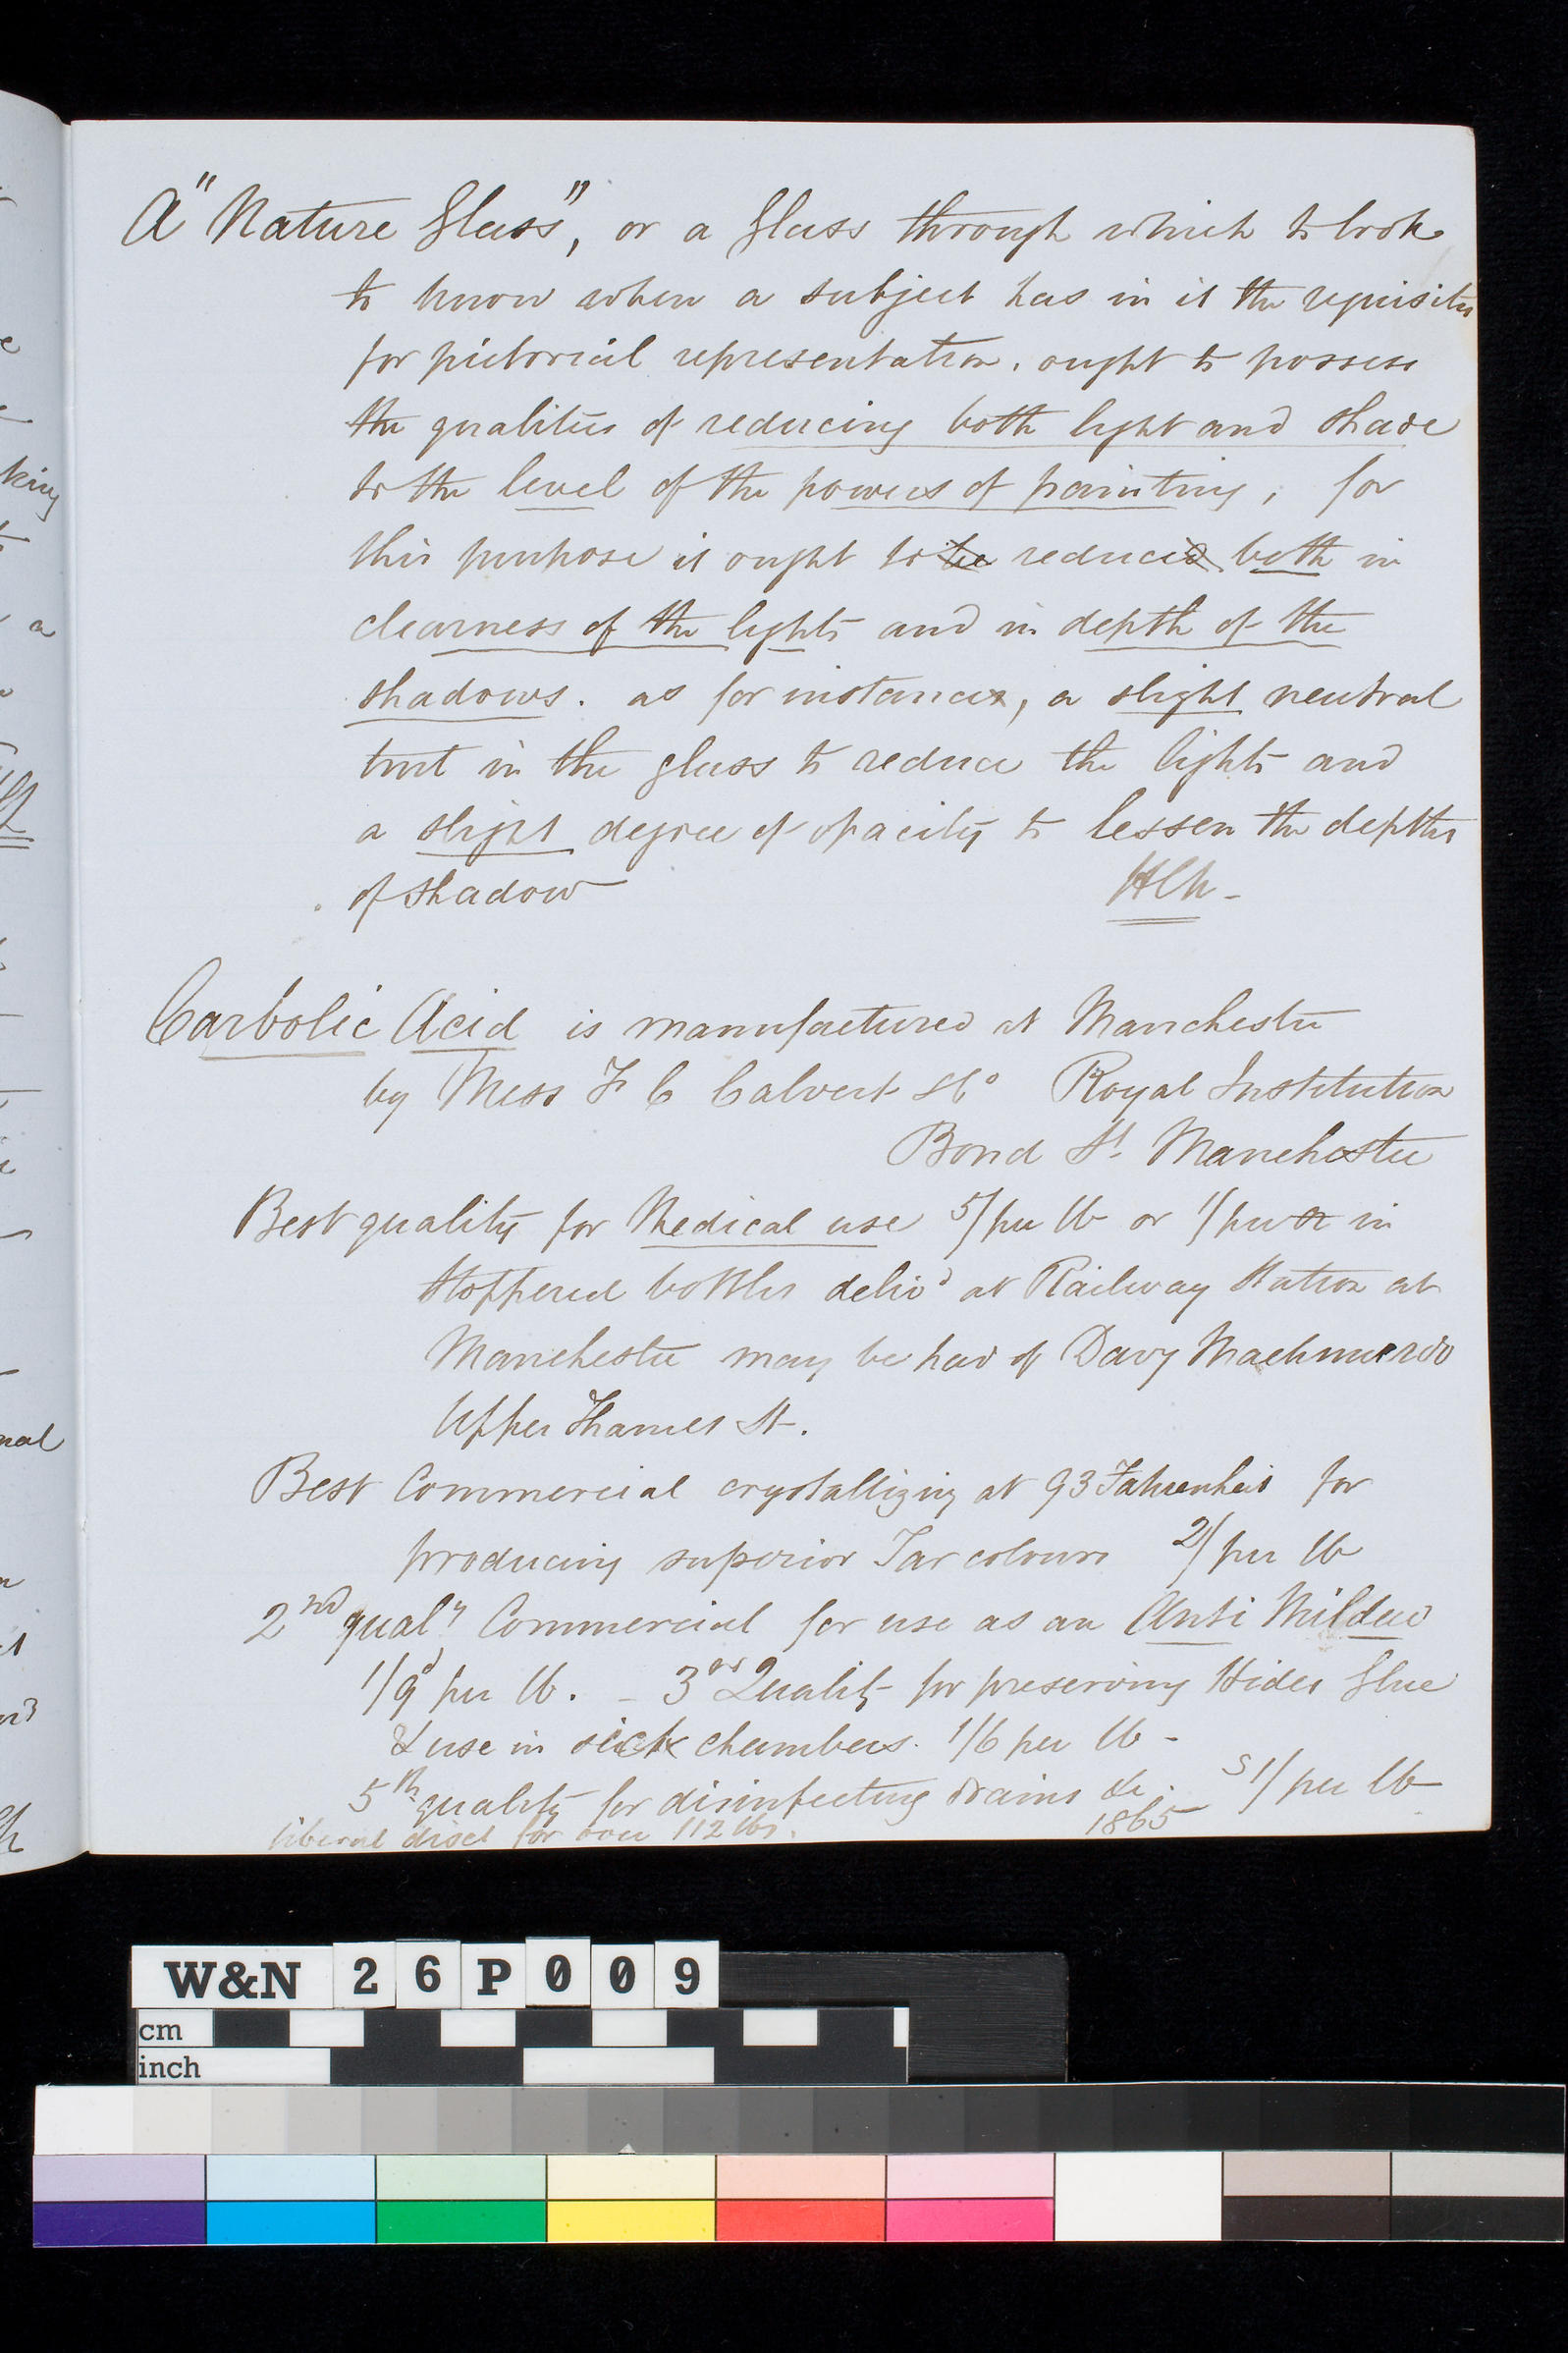 A "Nature Glass", or a Glass through which to look
to know when a subject has in it the requisites
for pictorial representation. ought to possess
the qualities of reducing both light and shade
to the level of the powers of painting; for
this purpose it ought to be reduced both in
clearness of the lights and in depth of the
shadows. as for instance, a slight neutral
tint in the glass to reduce the lights and
a slight degree of opacity to lessen the depths
of shadow
Carbolic Acid is manufactured at Manchester
by Mess F C Calvert & Co Royal Institution
Bond St. Manchester
Best quality for Medical use 5/ per lb or 1/ per oz in
Stoppered bottles delivd at Railway Station at
Manchester may be had of Davy Macmurdo
Upper Thames St.
Best Commercial crystallizing at 93 Fahrenheit for
producing superior Tar colours 2/ per lb
2nd qualy Commercial for use as an Anti Mildew
1/9d per lb. – 3rd Quality for preserving Hides Glue
& use in sick chambers. 1/6 per lb –
5th quality for disinfecting drains &c. 1/ per lb
liberal disct for over 112 lbs. 1865
king
a
nal
W&N 26P009
cm
inch